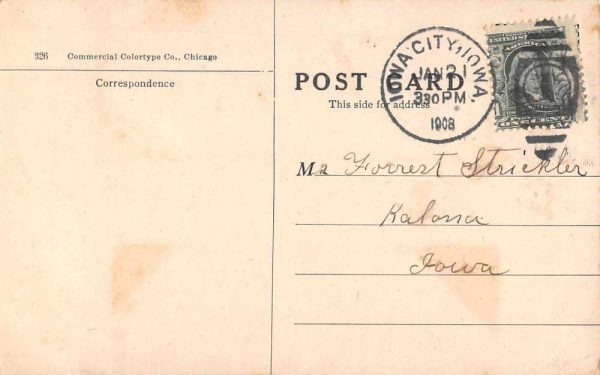 326 Commercial Colortype Co., Chicago
Correspondence
POST CARD
This side for address
IOWA CITY, IOWA.
JAN 21
330 PM
1908
Mr Forrest Strickler
Kalona
Iowa
UNITED STATES
AMERICA
ONE CENT